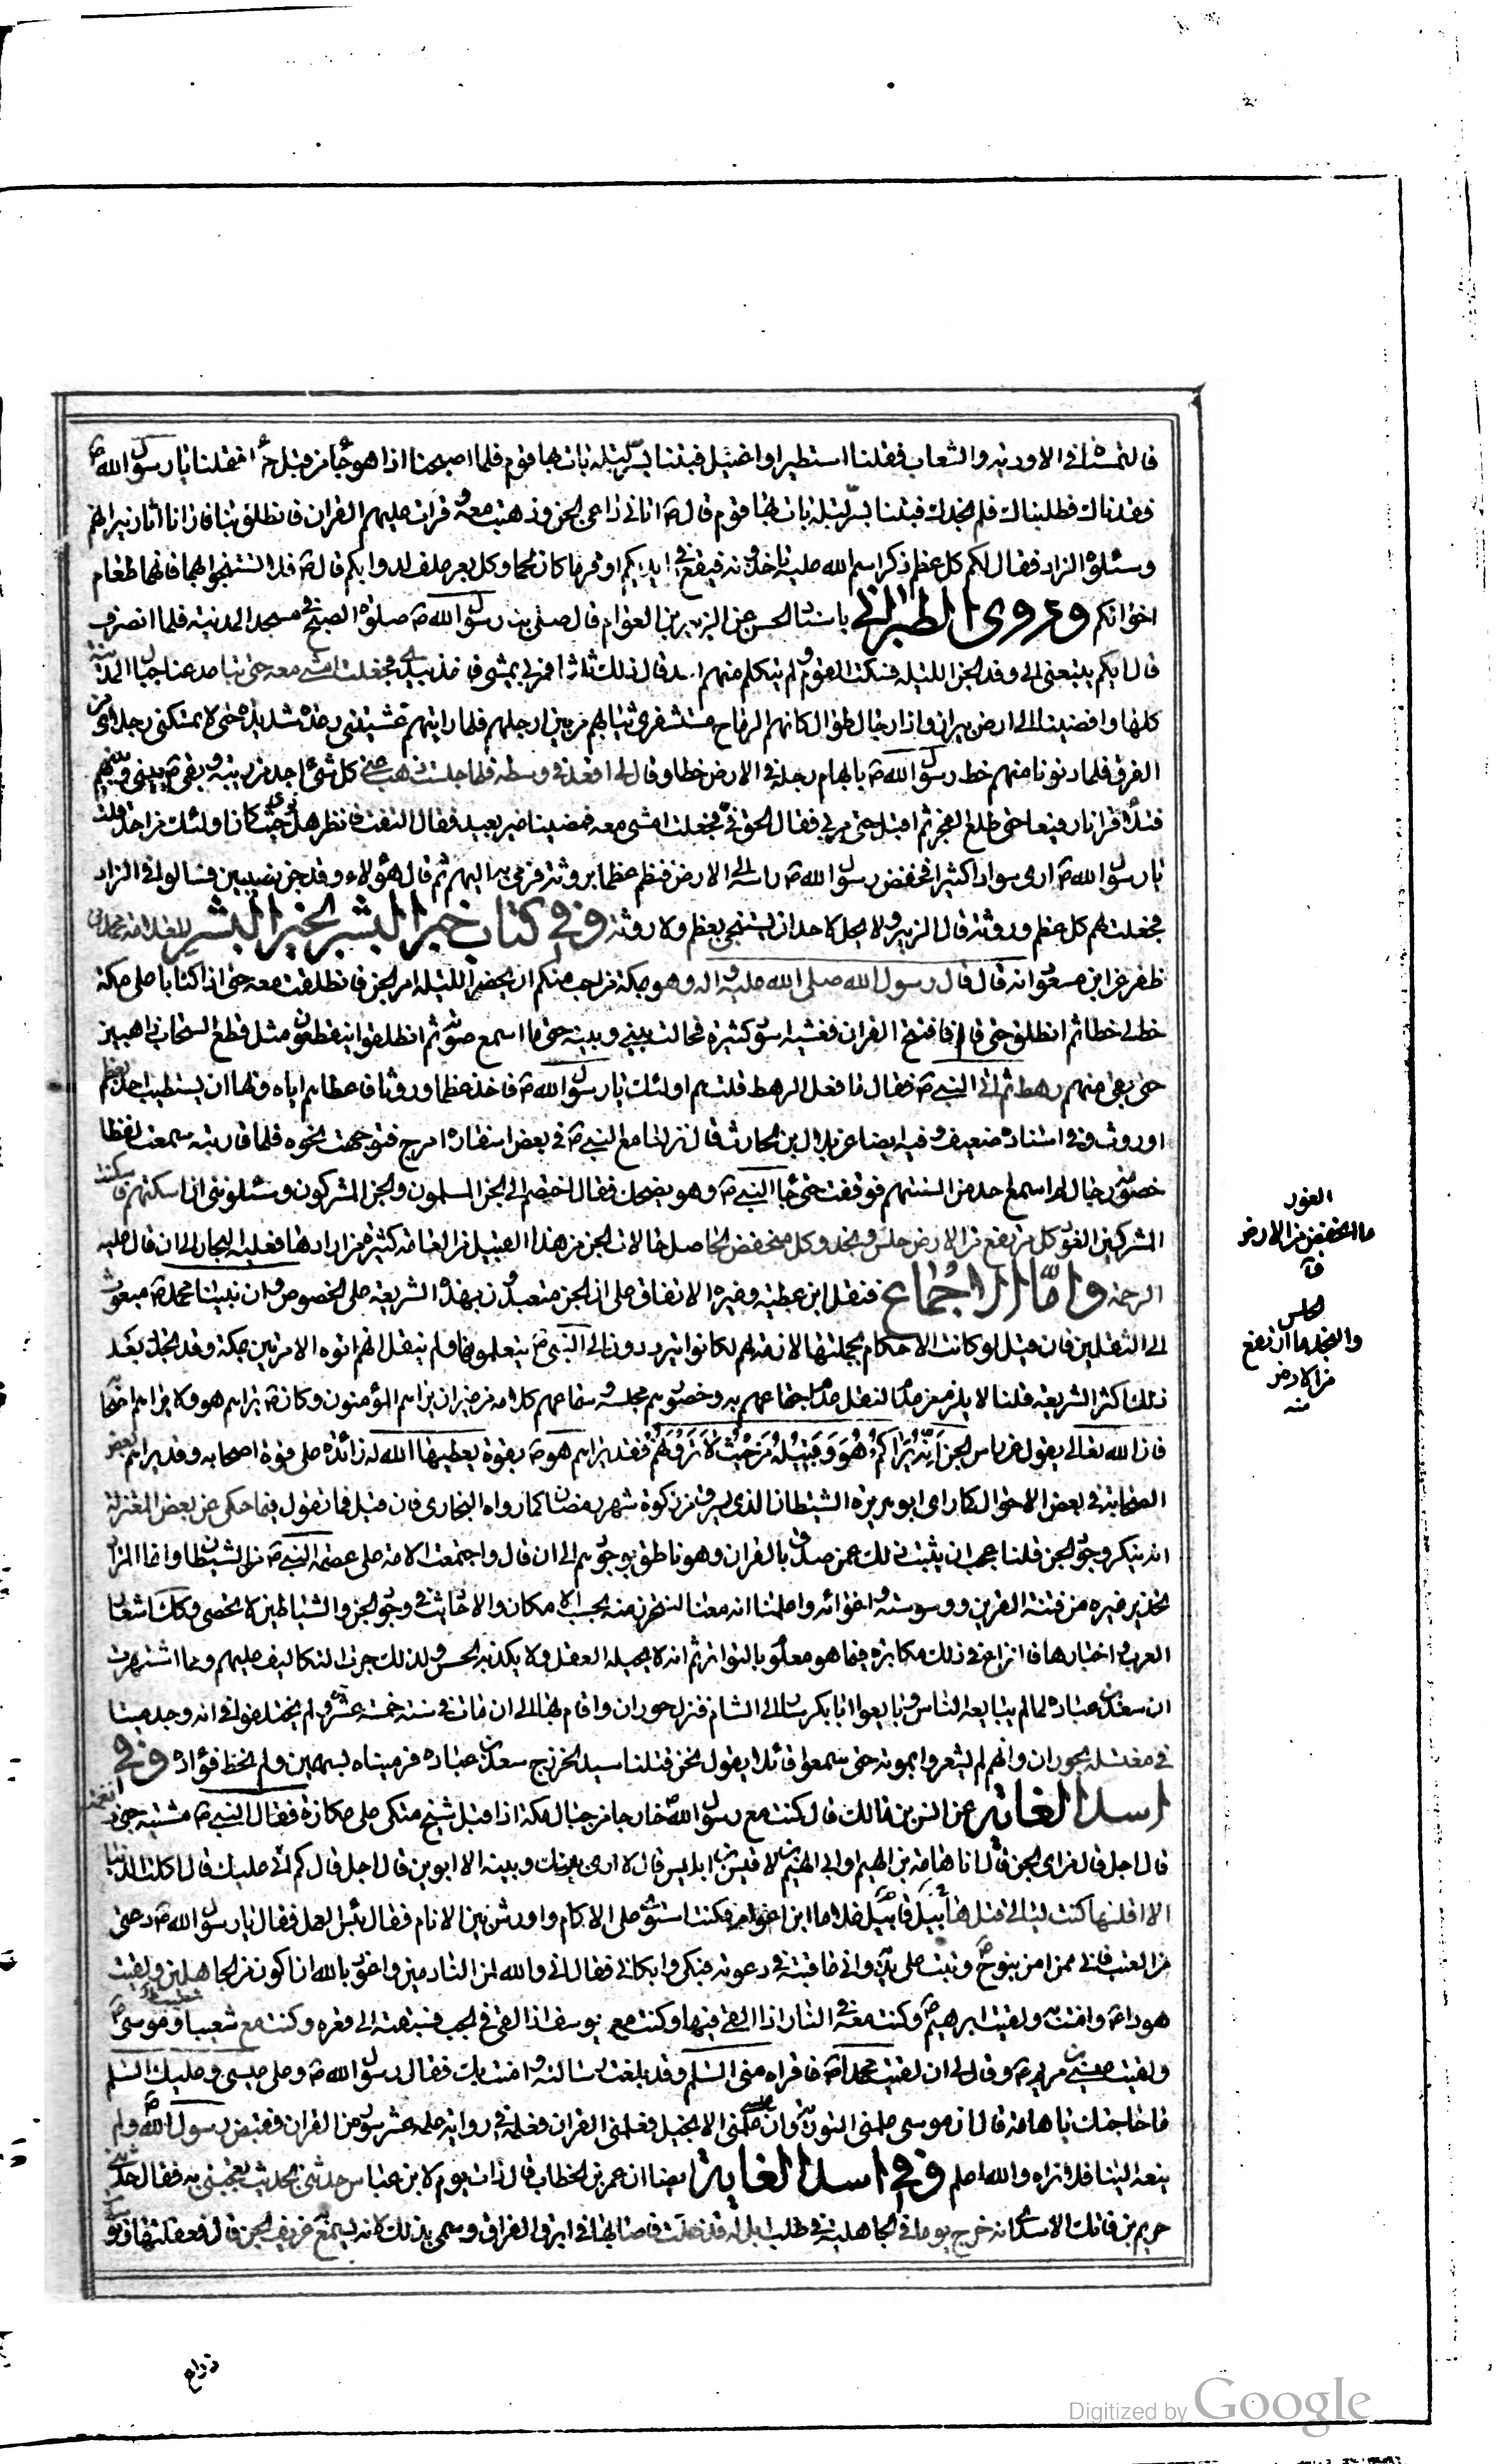 فالتمسناه فى الاودية والشعاب فقلنا استطير او اغتيل فبتنا بشر ليلة بات بها قوم فلما اصبحنا اذا هو جاء من قبل حراء فقلنا يا رسول الله ص
فقدناك فطلبناك فلم نجدك فبتنا بشر ليلة بات بها قوم قال ص اتانى داعى الجن وذهبت معه وقرات عليهم القران فانطلق بنا فارانا اثار نيرانهم
وسئلوه الزاد فقال لكم كل عظم ذكر اسم الله عليه تاخذونه فيقع فى ايديكم اوفر ما كان لحما وكل بعر علف لدوابكم قال ص فلا تستنجوا بهما فانهما طعام
اخوانكم وروى الطبرانى باسناد حسن عن الزبير بن العوام قال صلى بنا رسول الله ص صلوة الصبح فى مسجد المدينة فلما انصرف
قال ايكم يتبعنى الى وفد الجن الليلة فسكت القوم ولم يتكلم منهم احد قال ذلك ثلاثا فمر بى يمشى فاخذ بيدى فجعلت امشى معه حتى تباعد عنا جبال المدينة
كلها وافضينا الى ارض براز واذا رجال طوال كانهم الرماح مستثفرى ثيابهم من بين ارجلهم فلما رايتهم غشيتنى رعدة شديدة حتى لا تمسكنى رجلاى من
الفرق فلما دنونا منهم خط رسول الله ص بابهام رجله فى الارض خطا وقال لى اقعد فى وسطه فلما جلست ذهب عنى كل شئ اجده من ريبة وبقى ص بينى وبينهم
فتلا قرانا رفيعا حتى طلع الفجر ثم اقبل حتى مر بى فقال الحق بى فجعلت امشى معه فمضينا غير بعيد فقال التفت فانظر هل ترى حيث كان اولئك من احد فقلت
يا رسول الله ص ارى سوادا كثيرا فخفض رسول الله ص راسه الى الارض فنظم عظما بروثة فرمى به اليهم ثم قال هؤلاء وفد جن نصيبين فسالونى الزاد
فجعلت لهم كل عظم وروثة قال الزبير ولا يحل لاحد ان يستنجى بعظم ولا روثة وفى كتاب خير البشر بخير البشر للعلامة محمد بن
ظفر عن ابن مسعود انه قال قال رسول الله صلى الله عليه واله وهو بمكة من احب منكم ان يحضر الليلة امر الجن فانطلقت معه حتى اذا كنا باعلى مكة
خط لى خطا ثم انطلق حتى قام فافتتح القران فغشيه اسودة كثيرة فحالت بينى وبينه حتى ما اسمع صوته ثم انطلقوا يتقطعون مثل قطع السحاب ذاهبين
حتى بقى منهم رهط ثم اتى النبى ص فقال ما فعل الرهط قلت هم اولئك يا رسول الله ص فاخذ عظما وروثا فاعطاهم اياه ونهى ان يستطيب احد بعظم
او روث وفى اسناده ضعيف وفيه ايضا عن بلال بن الحارث قال نزلنا مع النبى ص فى بعض اسفاره بالعرج فتوجهت نحوه فلما قاربته سمعت لغطا
وخصومة رجال لم اسمع احد من السنتهم فوقفت حتى جاء النبى ص وهو يضحك فقال اختصم الى الجن المسلمون والجن المشركون وسئلونى ان اسكنهم فاسكنت
المشركين الغور كل مرتفع من الارض جلس ونجد وكل منخفض
الرحمة واما الاجماع فنقل ابن عطية وغيره الاتفاق على ان الجن متعبدون بهذه الشريعة على الخصوص وان نبينا محمد ص مبعوث
الى الثقلين فان قيل لو كانت الاحكام بجملتها لازمة لهم لكانوا يترددون الى النبى ص يتعلمونها ولم ينقل انهم اتوه الا مرتين بمكة وقد تجدد بعد
ذلك اكثر الشريعة قلنا لا يلزم من عدم النقل عدم اجتماعهم به وحضورهم مجلسه وسماعهم كلامه من غير ان يراهم المؤمنون وكان ص يراهم هو ولا يراهم اصحابه
فان الله تعالى يقول عن راس الجن انه يراكم هو وقبيله من حيث لا ترونهم فقد يراهم هو ص بقوة يعطيها الله له زائدة على قوة اصحابه وقد يراهم بعض
الصحابة فى بعض الاحوال كما راى ابو هريرة الشيطان الذى سرق من زكوة شهر رمضان كما رواه البخارى فان قيل فما تقول فيما حكى عن بعض المعتزلة
انه ينكر وجود الجن قلنا عجب ان يثبت ذلك عمن صدق بالقران وهو ناطق بوجودهم الى ان قال واجتمعت الامة على عصمة النبى ص من الشيطان وانما المراد
تحذير غيره من فتنة القرين ووسوسته واغوائه واعلمنا انه معنا لنتحرز منه بحسب الامكان والاحاديث فى وجود الجن والشياطين لا تحصى وكذلك اشعار
العرب واخبارها فالنزاع فى ذلك مكابرة فيما هو معلوم بالتواتر ثم انه لا يحيله العقل ولا يكذبه الحس ولذلك جرت التكاليف عليهم ومما اشتهر
ان سعد بن عبادة لما لم يبايعه الناس وبايعوا ابا بكر سار الى الشام فنزل حوران واقام بها الى ان مات فى سنة خمسة عشر ولم يختلفوا فى انه وجد ميتا
فى مغتسله بحوران وانهم لم يشعروا بموته حتى سمعوا قائلا يقول نحن قتلنا سيد الخزرج سعد بن عبادة فرميناه بسهمين ولم نخط فؤاده وفى
اسد الغابة عن انس بن مالك قال كنت مع رسول الله خارجا من جبال مكة اذ اقبل شيخ متكئ على عكازة فقال النبى ص مشية جنى ونغمته
قال اجل قال من اى الجن قال انا هامة بن الهيم او ابن الهيم بن لاقيس بن ابليس قال لا ارى بينك وبينه الا ابوين قال اجل قال كم اتى عليك قال اكلت الدنيا
الا اقلها كنت ليالى قتل هابيل قابيل غلاما ابن اعوام فكنت استشرف على الاكام واورش بين الانام فقال بئس العمل فقال يا رسول الله ص دعنى
من العتب فانى ممن امن بنوح وتبت على يديه وانى عاتبته فى دعوته فبكى وابكانى فقال انى والله لمن النادمين واعوذ بالله ان اكون من الجاهلين ولقيت
هودا ص وامنت به ولقيت ابرهيم ص وكنت معه فى النار اذ القى فيها وكنت مع يوسف اذ القى فى الجب فسبقته الى قعره وكنت مع شعيب وموسى ص
ولقيت عيسى بن مريم ص وقال لى ان لقيت محمدا ص فاقراه منى السلم وقد بلغت رسالته وامنت بك فقال رسول الله ص وعلى عيسى وعليك السلم
ما حاجتك يا هامة قال ان موسى علمنى التورية وان عيسى علمنى الانجيل فعلمنى القران فعلمه وفى رواية علمه عشر سور من القران فقبض رسول الله ص ولم
ينعه الينا فلا نراه والله اعلم وفى اسد الغابة ايضا ان عمر بن الخطاب قال ذات يوم لابن عباس حدثنى بحديث تعجبنى به فقال حدثنى
خريم بن فاتك الاسدى انه خرج يوما فى الجاهلية فى طلب ابل له قد ضلت فاصابها فى ابرق العزاف وسمى بذلك لانه يسمع عزيف الجن قال فعقلتها وتوسدت
الغور
ما انخفض من الارض
ق
الجلس
والنجد ما ارتفع
من الارض
منه
ذراع
Digitized by Google